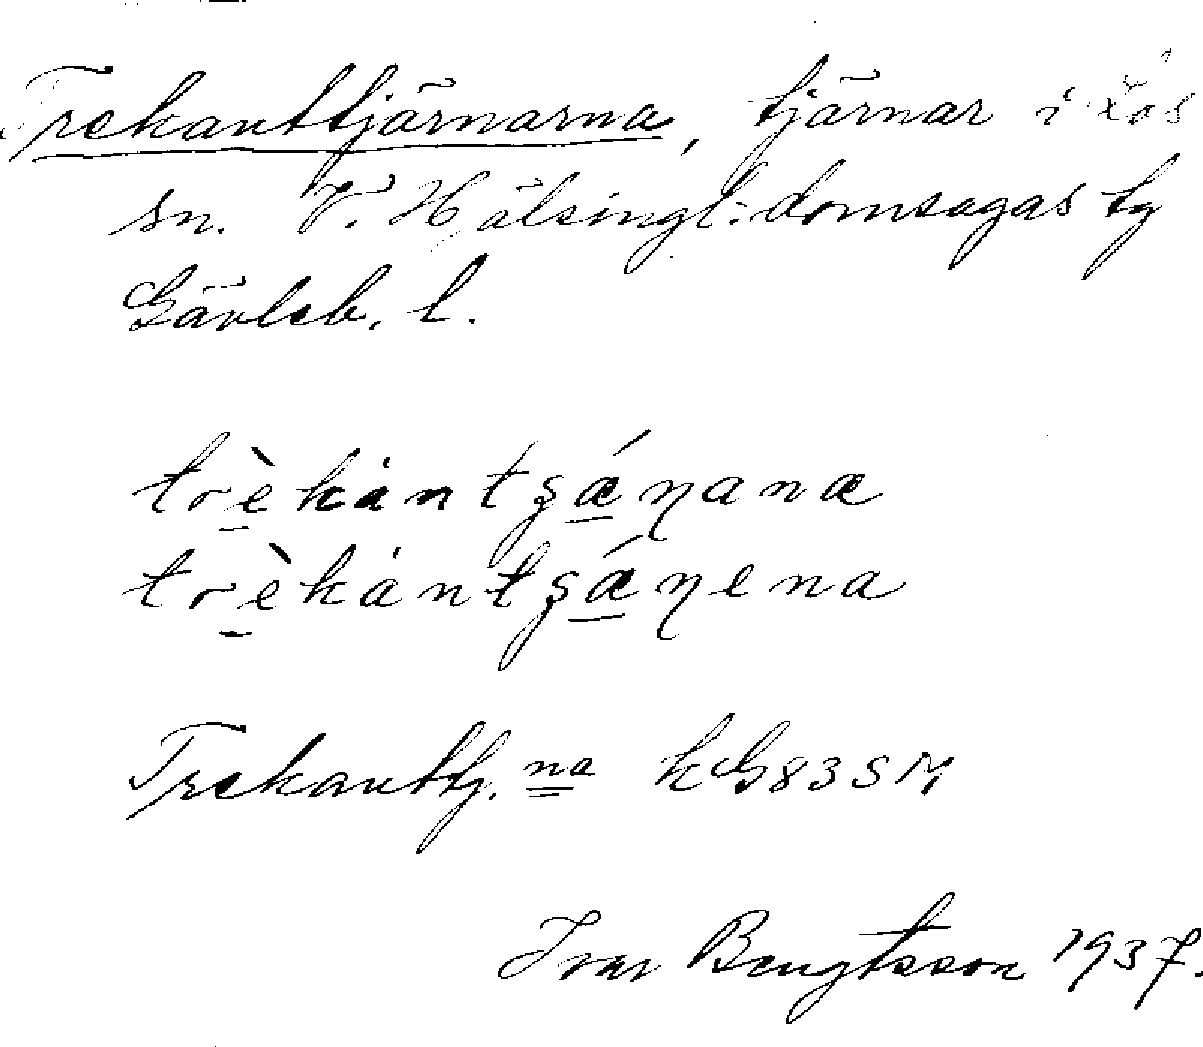 Trekanttjärnarna, tjärnar i Los
sn. V. Hälsingl:domsagas tg
Gävleb. l.
trèkȧntʂǽɳana
trèkȧntʂǽɳena
Trekanttj. na kG83SM
Ivar Bengtsson 1937.